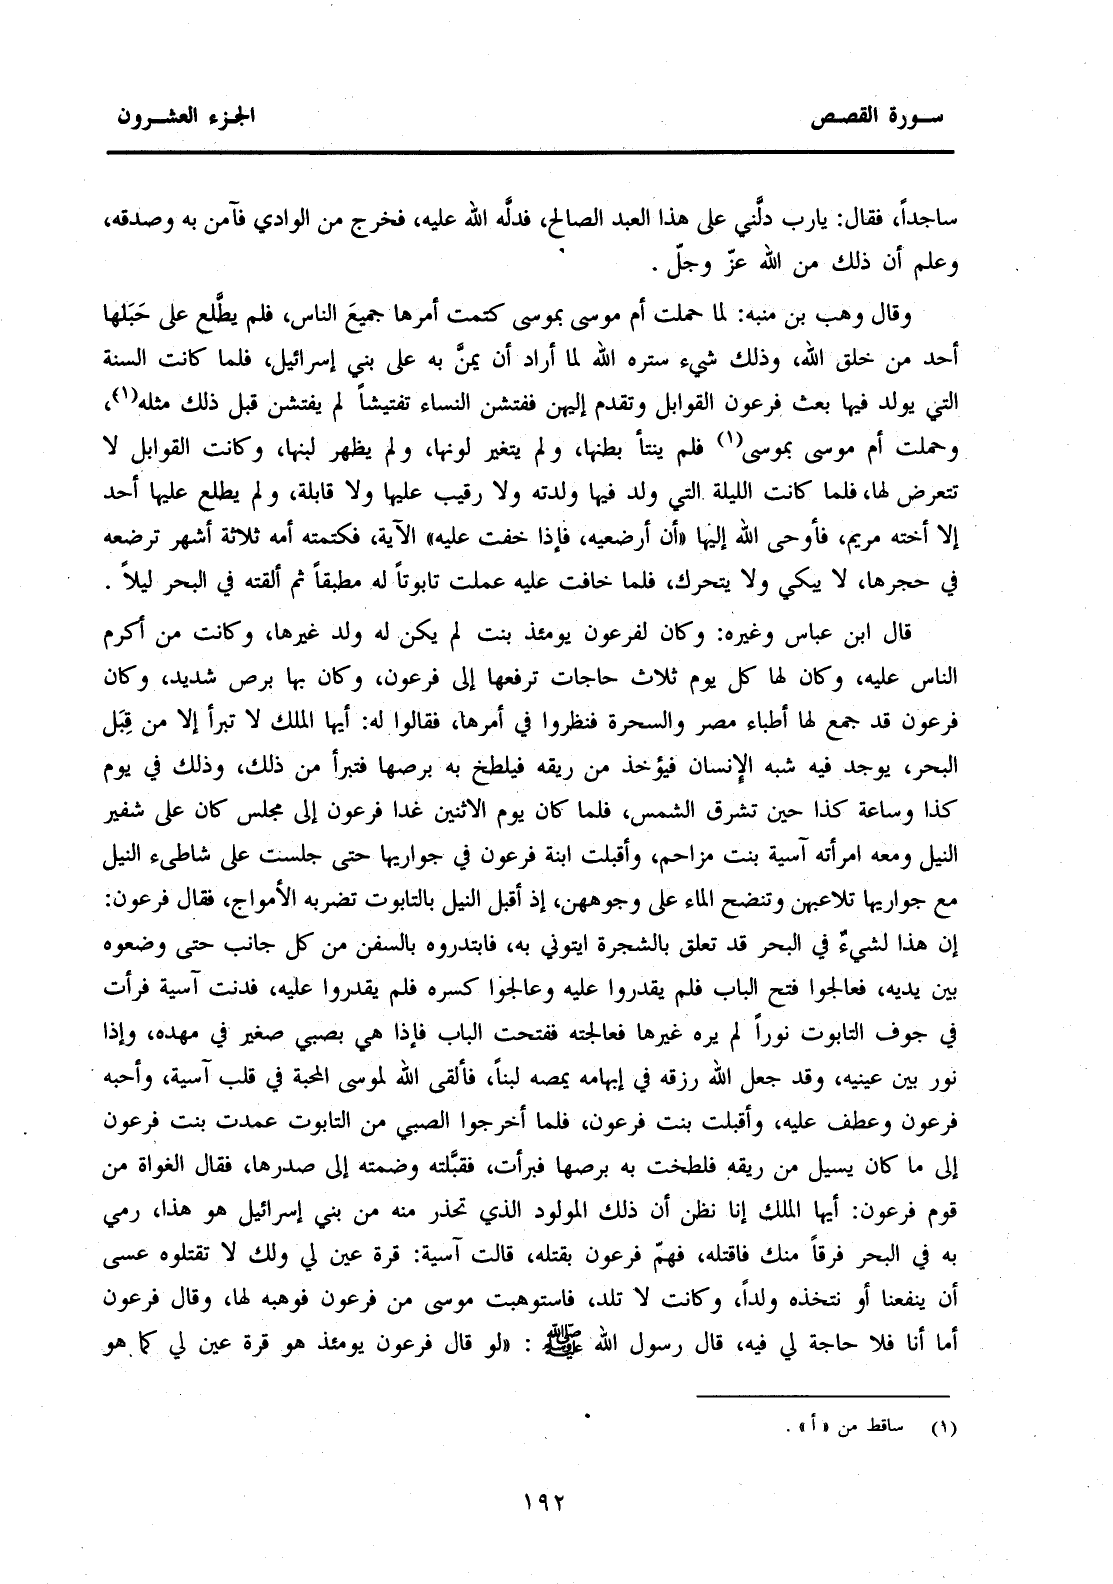 سورة القصص
الجزء العشرون
ساجداً، فقال: يارب دلَّني على هذا العبد الصالح، فدلَّه الله عليه، فخرج من الوادي فآمن به وصدقه،
وعلم أن ذلك من الله عزّ وجلّ .
وقال وهب بن منبه: لما حملت أم موسى بموسى كتمت أمرها جميعَ الناس، فلم يطَّلع على حَبَلها
أحد من خلق الله، وذلك شيء ستره الله لما أراد أن يمنَّ به على بني إسرائيل، فلما كانت السنة
التي يولد فيها بعث فرعون القوابل وتقدم إليهن ففتشن النساء تفتيشاً لم يفتشن قبل ذلك مثله(١)،
وحملت أم موسى بموسى(١) فلم ينتأ بطنها، ولم يتغير لونها، ولم يظهر لبنها، وكانت القوابل لا
تتعرض لها، فلما كانت الليلة التي ولد فيها ولدته ولا رقيب عليها ولا قابلة، ولم يطلع عليها أحد
إلا أخته مريم، فأوحى الله إليها «أن أرضعيه، فإذا خفت عليه» الآية، فكتمته أمه ثلاثة أشهر ترضعه
في حجرها، لا يبكي ولا يتحرك، فلما خافت عليه عملت تابوتاً له مطبقاً ثم ألقته في البحر ليلاً .
قال ابن عباس وغيره: وكان لفرعون يومئذ بنت لم يكن له ولد غيرها، وكانت من أكرم
الناس عليه، وكان لها كل يوم ثلاث حاجات ترفعها إلى فرعون، وكان بها برص شديد، وكان
فرعون قد جمع لها أطباء مصر والسحرة فنظروا في أمرها، فقالوا له: أيها الملك لا تبرأ إلا من قِبَل
البحر، يوجد فيه شبه الإنسان فيؤخذ من ريقه فيلطخ به برصها فتبرأ من ذلك، وذلك في يوم
كذا وساعة كذا حين تشرق الشمس، فلما كان يوم الاثنين غدا فرعون إلى مجلس كان على شفير
النيل ومعه امرأته آسية بنت مزاحم، وأقبلت ابنة فرعون في جواريها حتى جلست على شاطىء النيل
مع جواريها تلاعبهن وتنضح الماء على وجوههن، إذ أقبل النيل بالتابوت تضربه الأمواج، فقال فرعون:
إن هذا لشيءٌ في البحر قد تعلق بالشجرة ايتوني به، فابتدروه بالسفن من كل جانب حتى وضعوه
بين يديه، فعالجوا فتح الباب فلم يقدروا عليه وعالجوا كسره فلم يقدروا عليه، فدنت آسية فرأت
في جوف التابوت نوراً لم يره غيرها فعالجته ففتحت الباب فإذا هي بصبي صغير في مهده، وإذا
نور بين عينيه، وقد جعل الله رزقه في إبهامه يمصه لبناً، فألقى الله لموسى المحبة في قلب آسية، وأحبه
فرعون وعطف عليه، وأقبلت بنت فرعون، فلما أخرجوا الصبي من التابوت عمدت بنت فرعون
إلى ما كان يسيل من ريقه فلطخت به برصها فبرأت، فقبَّلته وضمته إلى صدرها، فقال الغواة من
قوم فرعون: أيها الملك إنا نظن أن ذلك المولود الذي تحذر منه من بني إسرائيل هو هذا، رمي
به في البحر فرقاً منك فاقتله، فهمّ فرعون بقتله، قالت آسية: قرة عين لي ولك لا تقتلوه عسى
أن ينفعنا أو نتخذه ولداً، وكانت لا تلد، فاستوهبت موسى من فرعون فوهبه لها، وقال فرعون
أما أنا فلا حاجة لي فيه، قال رسول الله ﷺ : «لو قال فرعون يومئذ هو قرة عين لي كما هو
(١) ساقط من «أ» .
١٩٢